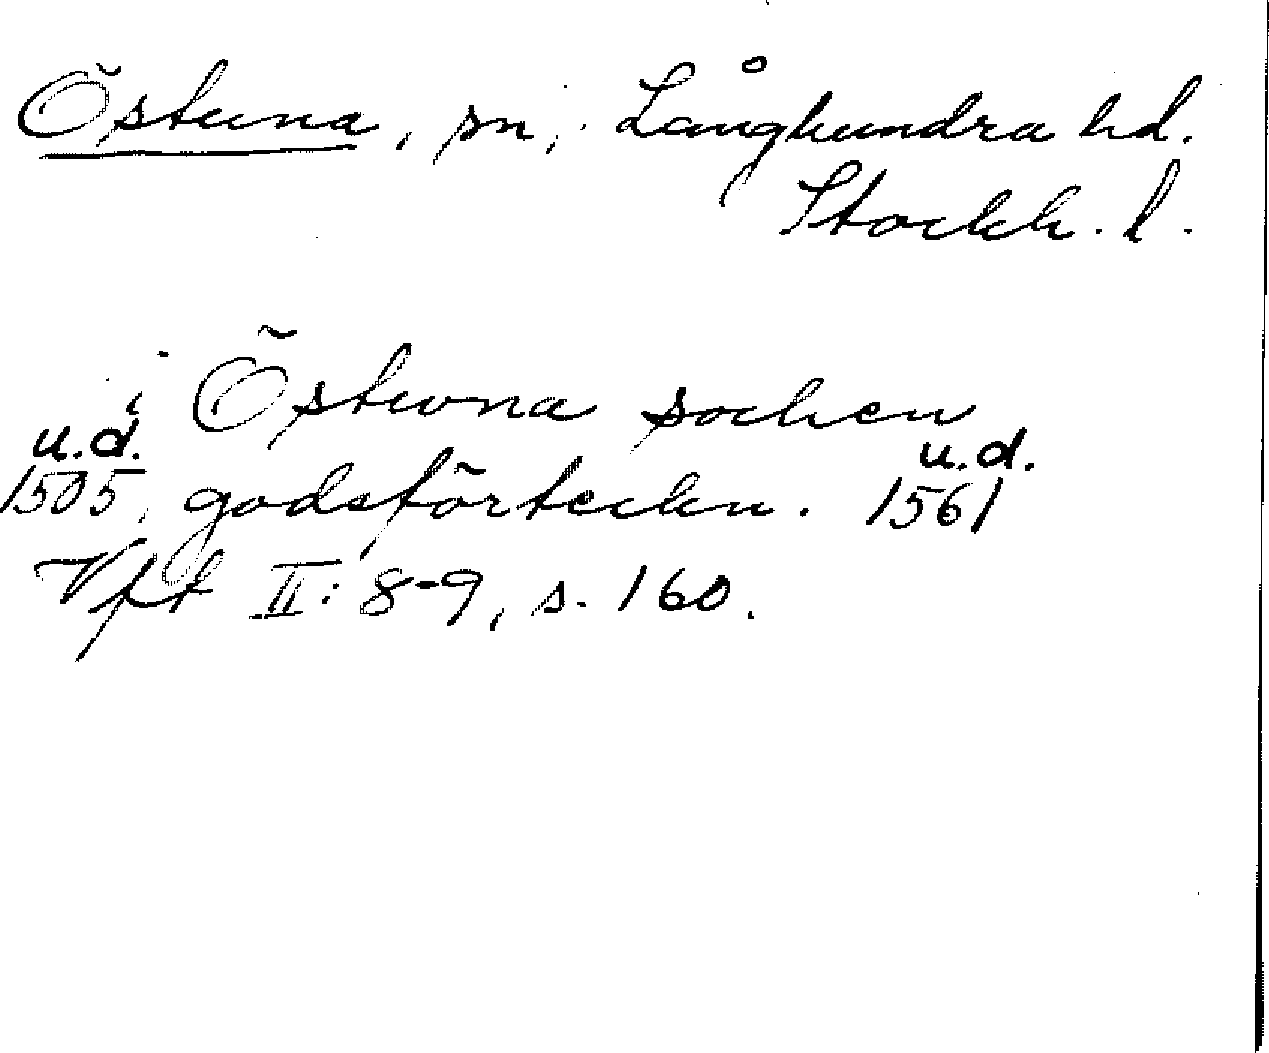 Östuna, sn, Långhundra hd.
Stockh. l.
i Östwna sochen
u.d. u.d.
1505, godsförteckn. 1561
Vft II: 8-9, s. 160.